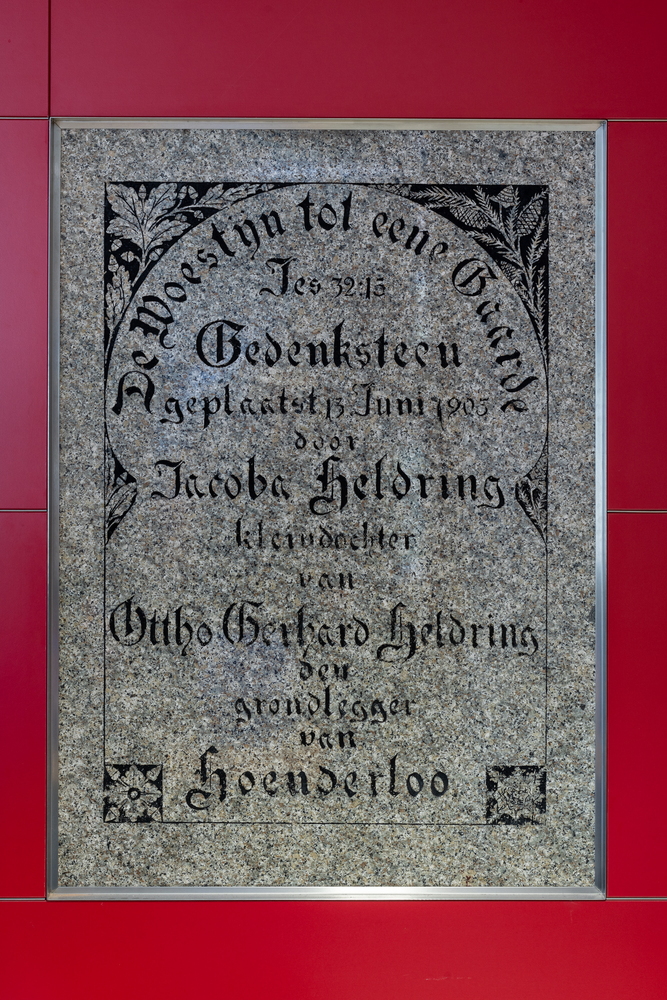 De Woestyn tot eene Gaarde
Jes 32:15
Gedenksteen
geplaatst 13 Juni 1905
door
Jacoba Heldring
kleindochter
van
Ottho Gerhard Heldring
den
grondlegger
van
Hoenderloo